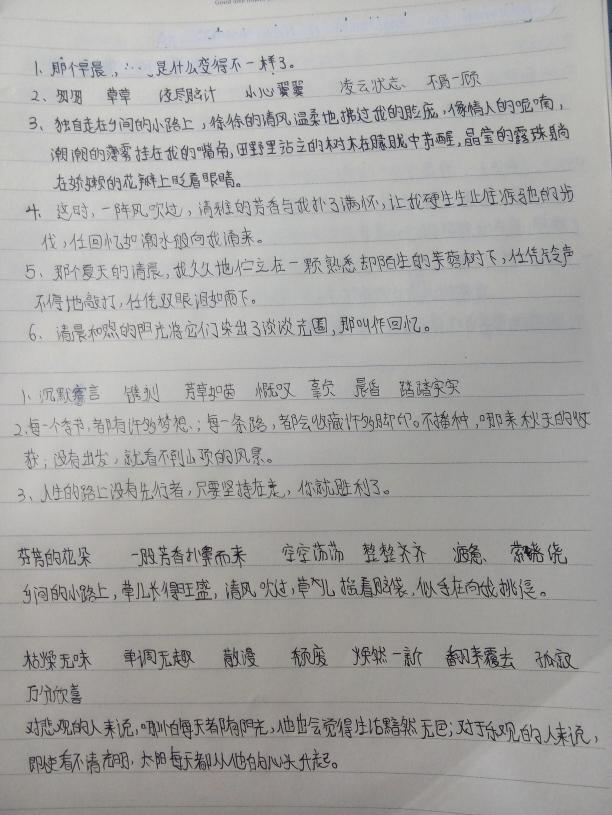 1、那个早晨,……是什么变得不一样了。
2、匆匆 草草 凌云状志 不屑一顾 小心翼翼
3、独自走在乡间的小路上,徐徐的清风温柔地拂过我的脸庞,像情人的呢喃,
潮潮的薄雾挂在我的嘴角,田野里站立的树木在朦胧中苏醒,晶莹的露珠躺
在娇嫩的花瓣上眨着眼睛。
4、这时,一阵风吹过,清雅的芳香与我扑了满怀,让我硬生生止住疾驰的步
伐,任回忆如潮水般向我涌来。
5、那个夏天的清晨,我久久地伫立在一颗熟悉却陌生的芙蓉树下,任凭铃声
不停地敲打,任凭双眼泪如雨下。
6、清晨和煦的阳光将它们染出了淡淡光圈,那叫作回忆。
1、沉默寡言 镌刻 芳草如茵 慨叹 亏欠 晨昏 踏踏实实
2、每一个季节,都有许多梦想,;每一条路,都会收藏许多脚印。不播种,哪来秋天的收
获;没有出发,就看不到山顶的风景。
3、人生的路上没有先行者,只要坚持在走,你就胜利了。
芬芳的花朵 一股芳香扑鼻而来 空空荡荡 整整齐齐 洒 萦绕
乡间的小路上,草儿长得旺盛,清风吹过,草儿摇着脑袋,似乎在向我挑逗。
枯燥无味 单调无趣 散漫 颓废 焕然一新 翻来覆去 孤寂
万分欣喜
对悲观的人来说,哪怕每天都有阳光,他也会觉得生活黯然无色;对于乐观的人来说,
即使看不清声明,太阳每天都从他的心头升起。